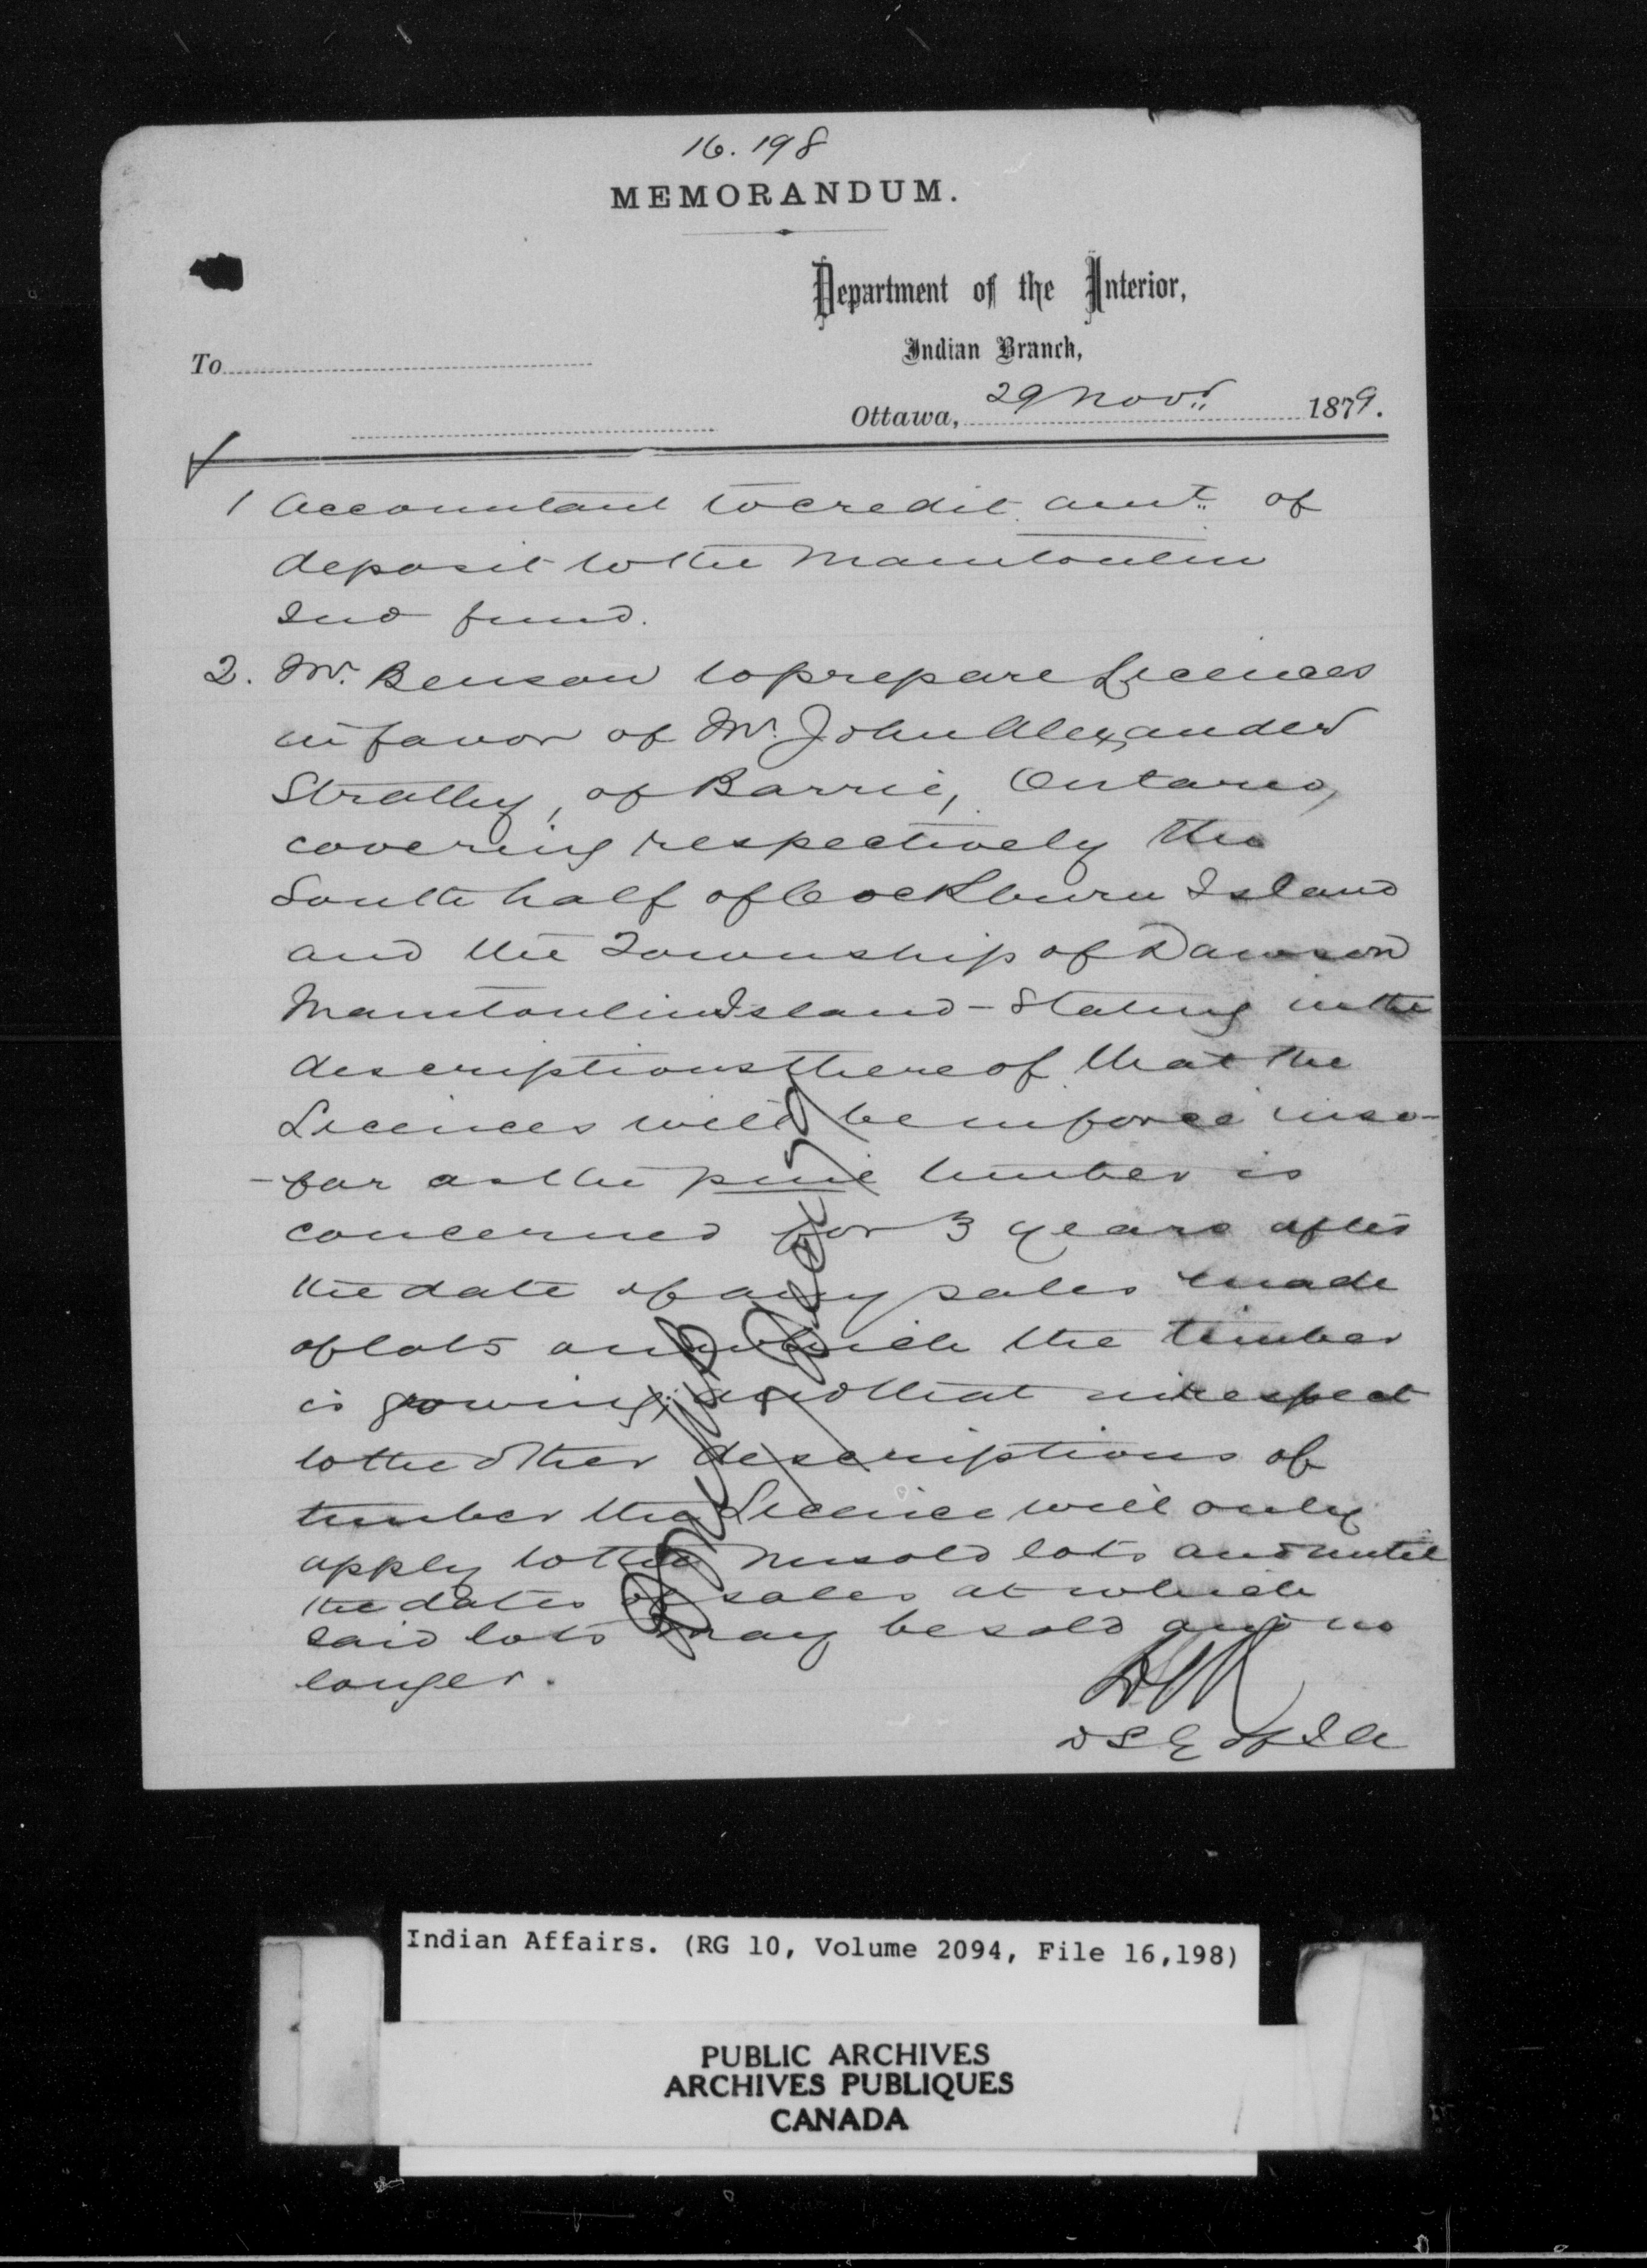 16.198
MEMORANDUM.
Department of the Interior,
Indian Branch,
To
Ottawa, 29 Novr 1879.
1 Accountant to credit amt. of
deposit to the Manitoulin
Ind fund.
2. Mr. Benson to prepare Licences
in favor of Mr. John Alexander
Strathy, of Barrie, Ontario,
covering respectively the
South half of Cockburn Island
and the Township of Dawson
Manitoulin Island - Stating in the
descriptions thereof that the
Licences will be in force inso-
-far as the pine timber is
concerned for 3 years after
the date of any sales made
of lots on which the timber
is growing; and that in respect
to the other descriptions of
timber the Licence will only
apply to the unsold lots and until
the dates of sales at which
said lots may be sold and no
longer.
D S G of I A
Indian Affairs. (RG 10, Volume 2094, File 16,198)
PUBLIC ARCHIVES
ARCHIVES PUBLIQUES
CANADA